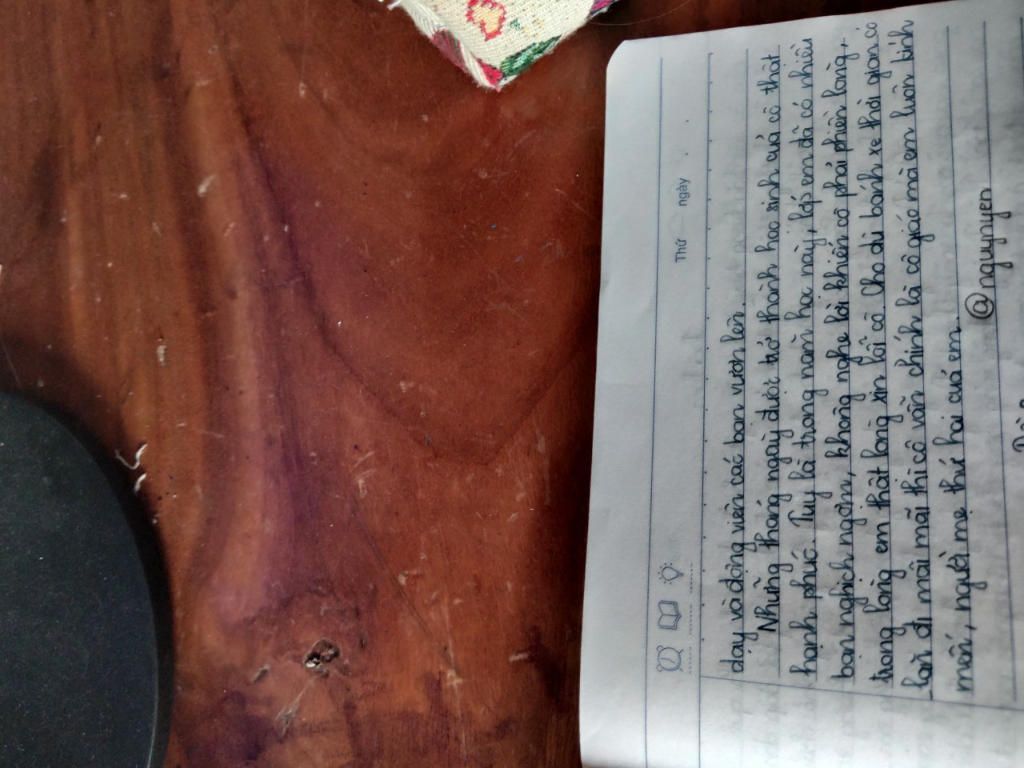 Thứ ngày
dạy và động viên các bạn vươn lên.
Những tháng ngày được trở thành học sinh của cô thật
hạnh phúc. Tuy là trong năm học này, lớp em đã có nhiều
bạn nghịch ngợm, không nghe lời khiến cô phải phiền lòng,
trong lòng em thật lòng xin lỗi cô. Cho dù bánh xe thời gian có
lăn đi mãi mãi thì cô vẫn chính là cô giáo mà em luôn kính
mến, người mẹ thứ hai của em.
@nguynyen